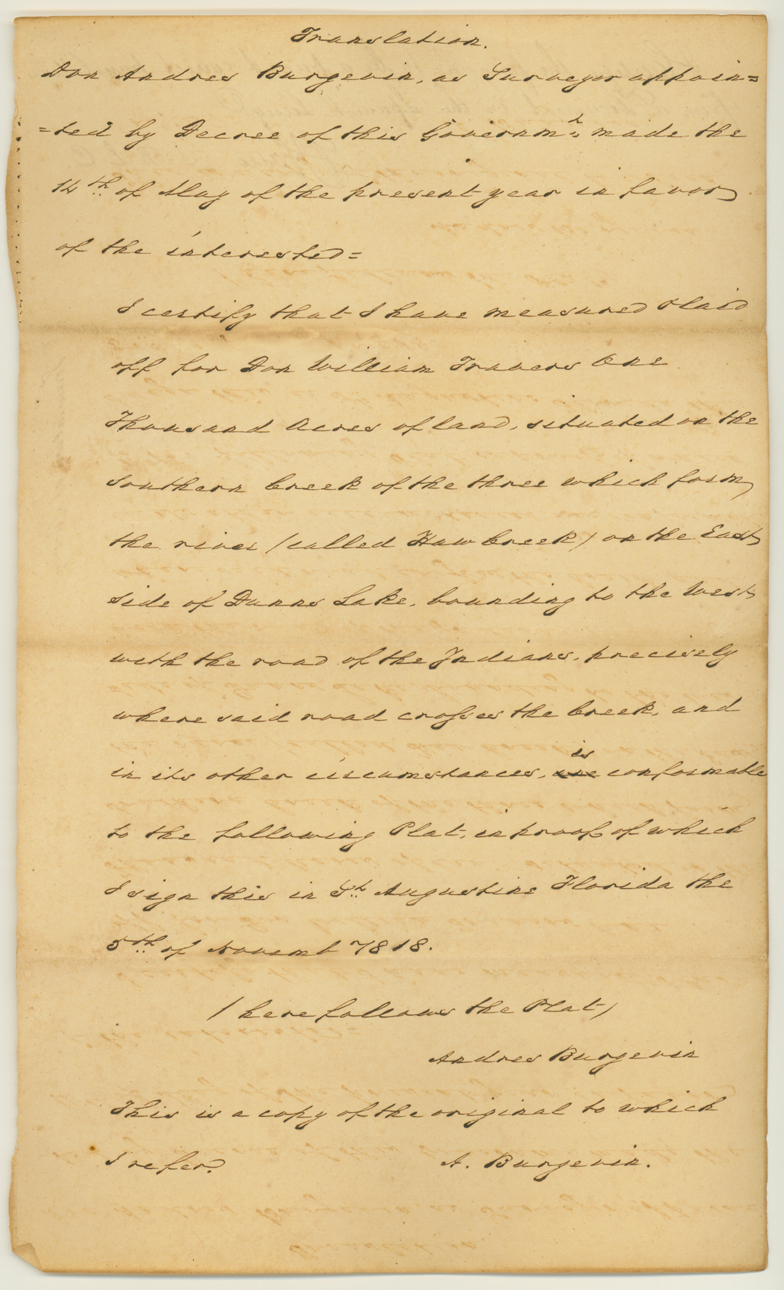 Translation.
Don Andres Burgevin, as Surveyor appoin=
=ted by Decree of this Governmt. made the
14th. of May of the present year in favor
of the interested=
I certify that I have measured & laid
off for Don William Travers One
Thousand Acres of land, situated on the
southern Creek of the three which form
the river (called Haw Creek) on the East
side of Dunns Lake, bounding to the West
with the road of the Indians, precisely
where said road crosses the Creek, and
in its other circumstances, is conformable
to the following Plat, in proof of which
I sign this in St. Augustine Florida the
5th. of Novemb 1818.
(here follows the Plat)
Andres Burgevin
This is a copy of the original to which
I refer.
A. Burgevin.